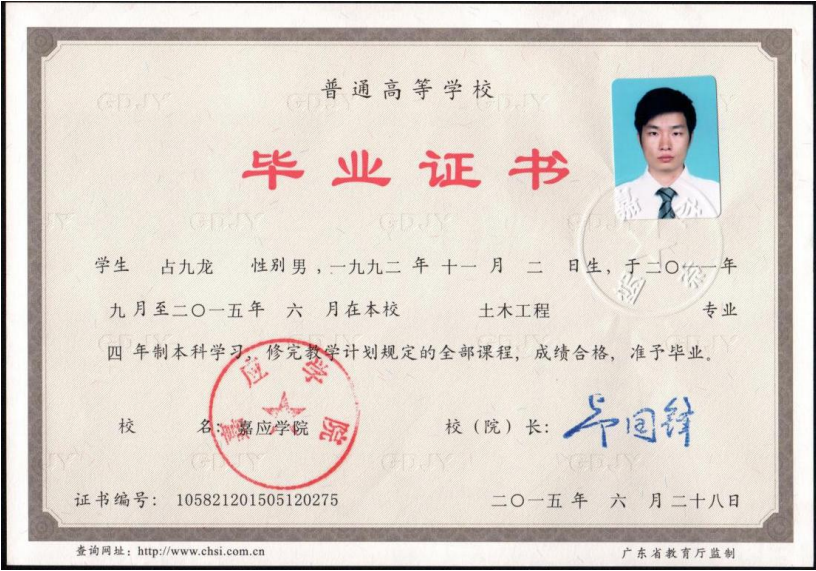 普通高等学校
毕业证书
学生 占九龙 性别 男 ，一九九二 年 十一 月 二 日生，于二〇一一年
九 月至二〇一五年 六 月在本校 土木工程 专业
四 年制本科学习，修完教学计划规定的全部课程，成绩合格，准予毕业。
校 名：嘉应学院 校（院）长：
嘉应学院
证书编号： 105821201505120275 二〇一五 年 六 月二十八日
查询网址：http://www.chsi.com.cn 广东省教育厅监制
GDJY GDJY GDJY